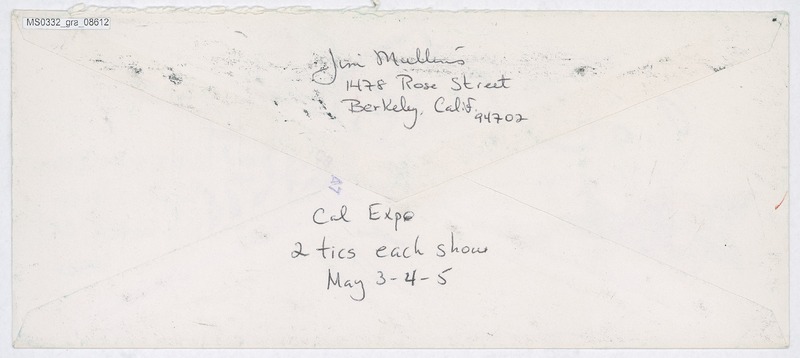 MS0332_gra_08612
Jim Mullins
1478 Rose Street
Berkeley, Calif.
94702
47
Cal Expo
2 tics each show
May 3-4-5